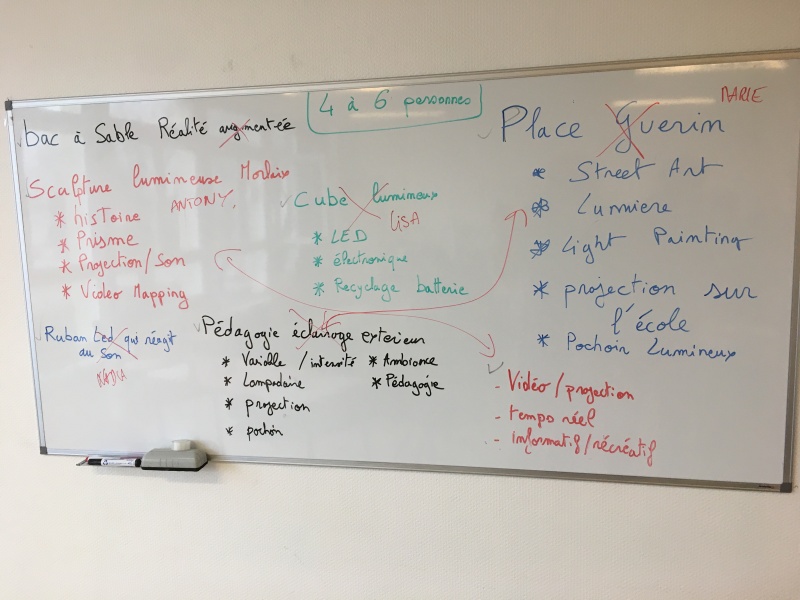 4 à 6 personnes
MARIE
bac à Sable Réalité augmentée
Sculpture lumineuse Morlaix
ANTONY.
* hisToire
* Prisme
* Projection/Son
* Video Mapping
Cube lumineux
LISA
* LED
* électronique
* Recyclage batterie
Place Guerin
* Street Art
* Lumiere
* Light Painting
* projection sur
l'école
* Pochoir Lumineux
Ruban Led qui réagit
au Son
NADIA
Pédagogie éclairage exterieur
* Variable / intensité
* Lampadaire
* projection
* pochoir
* Ambiance
* Pédagogie
- Vidéo/projection
- temps réel
- informatif/récréatif